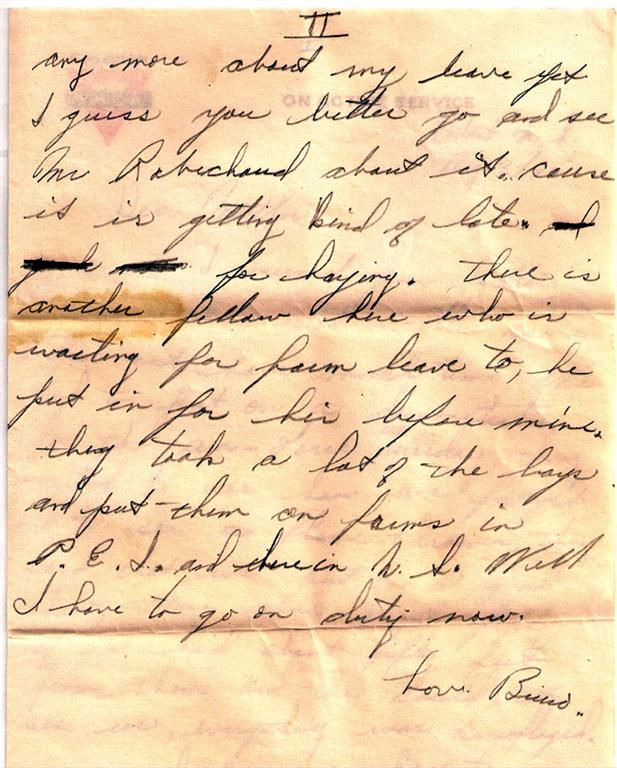 II
any more about my leave yet
ON ACTIVE SERVICE
I guess you better go and see
Mr Robichaud about it. cause
it is getting kind of late.
for haying. There is
another fellow here who is
waiting for farm leave to, he
put in for his before mine.
they took a lot of the boys
and put them on farms in
P. E. I. and here in N. S. Well
I have to go on duty now.
Love.